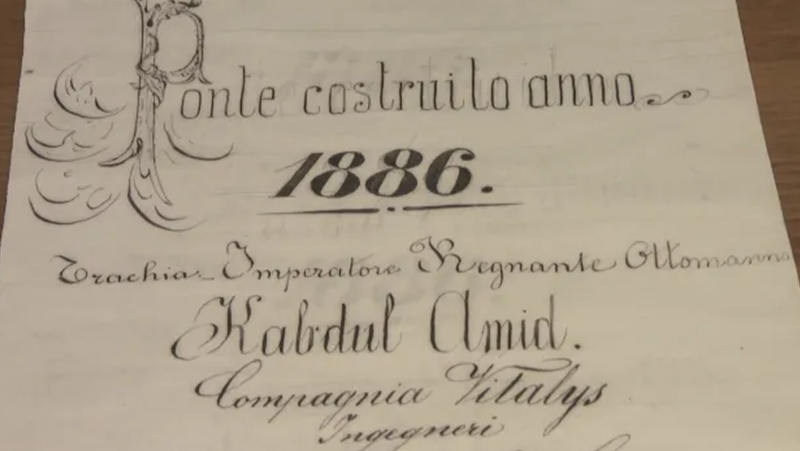 Ponte costruito anno
1886.
Trachia - Imperatore Regnante Ottomanno
Kabdul Amid.
Compagnia Vitalys
Ingegneri